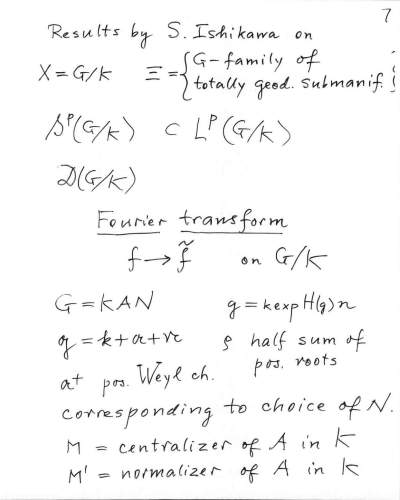 7
Results by S. Ishikawa on
X = G/K Ξ = { G-family of
totally geod. submanif. }
𝒮ᵖ(G/K) ⊂ Lᵖ(G/K)
𝒟(G/K)
Fourier transform
f → f̃ on G/K
G = KAN g = k exp H(g) n
𝔤 = 𝔨 + 𝔞 + 𝔫 ρ half sum of
pos. roots
𝔞⁺ pos. Weyl ch.
corresponding to choice of N.
M = centralizer of A in K
M' = normalizer of A in K